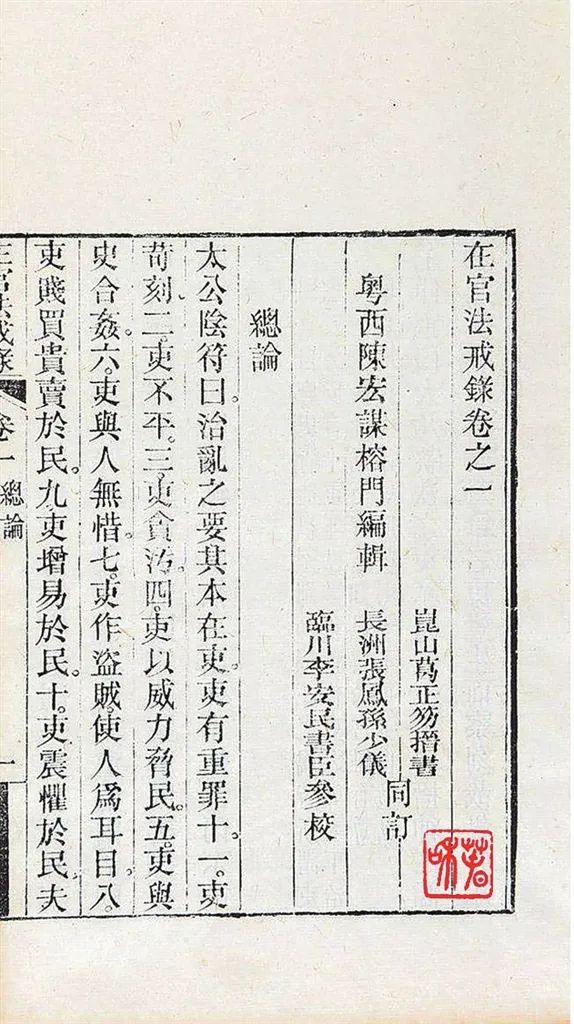 在官法戒錄卷之一
崑山葛正笏搢書
粵西陳宏謀榕門編輯 長洲張鳳孫少儀 同訂
臨川李安民書臣參校
總論
太公陰符曰。治亂之要其本在吏。吏有重罪十。一。吏
苛刻。二。吏不平。三。吏貪污。四。吏以威力脅民。五。吏與
史合姦。六。吏與人無惜。七。吏作盜賊。使人爲耳目。八。
吏賤買貴賣於民。九。吏增易於民。十。吏震懼於民。夫
在官法戒錄 卷一 總論 一